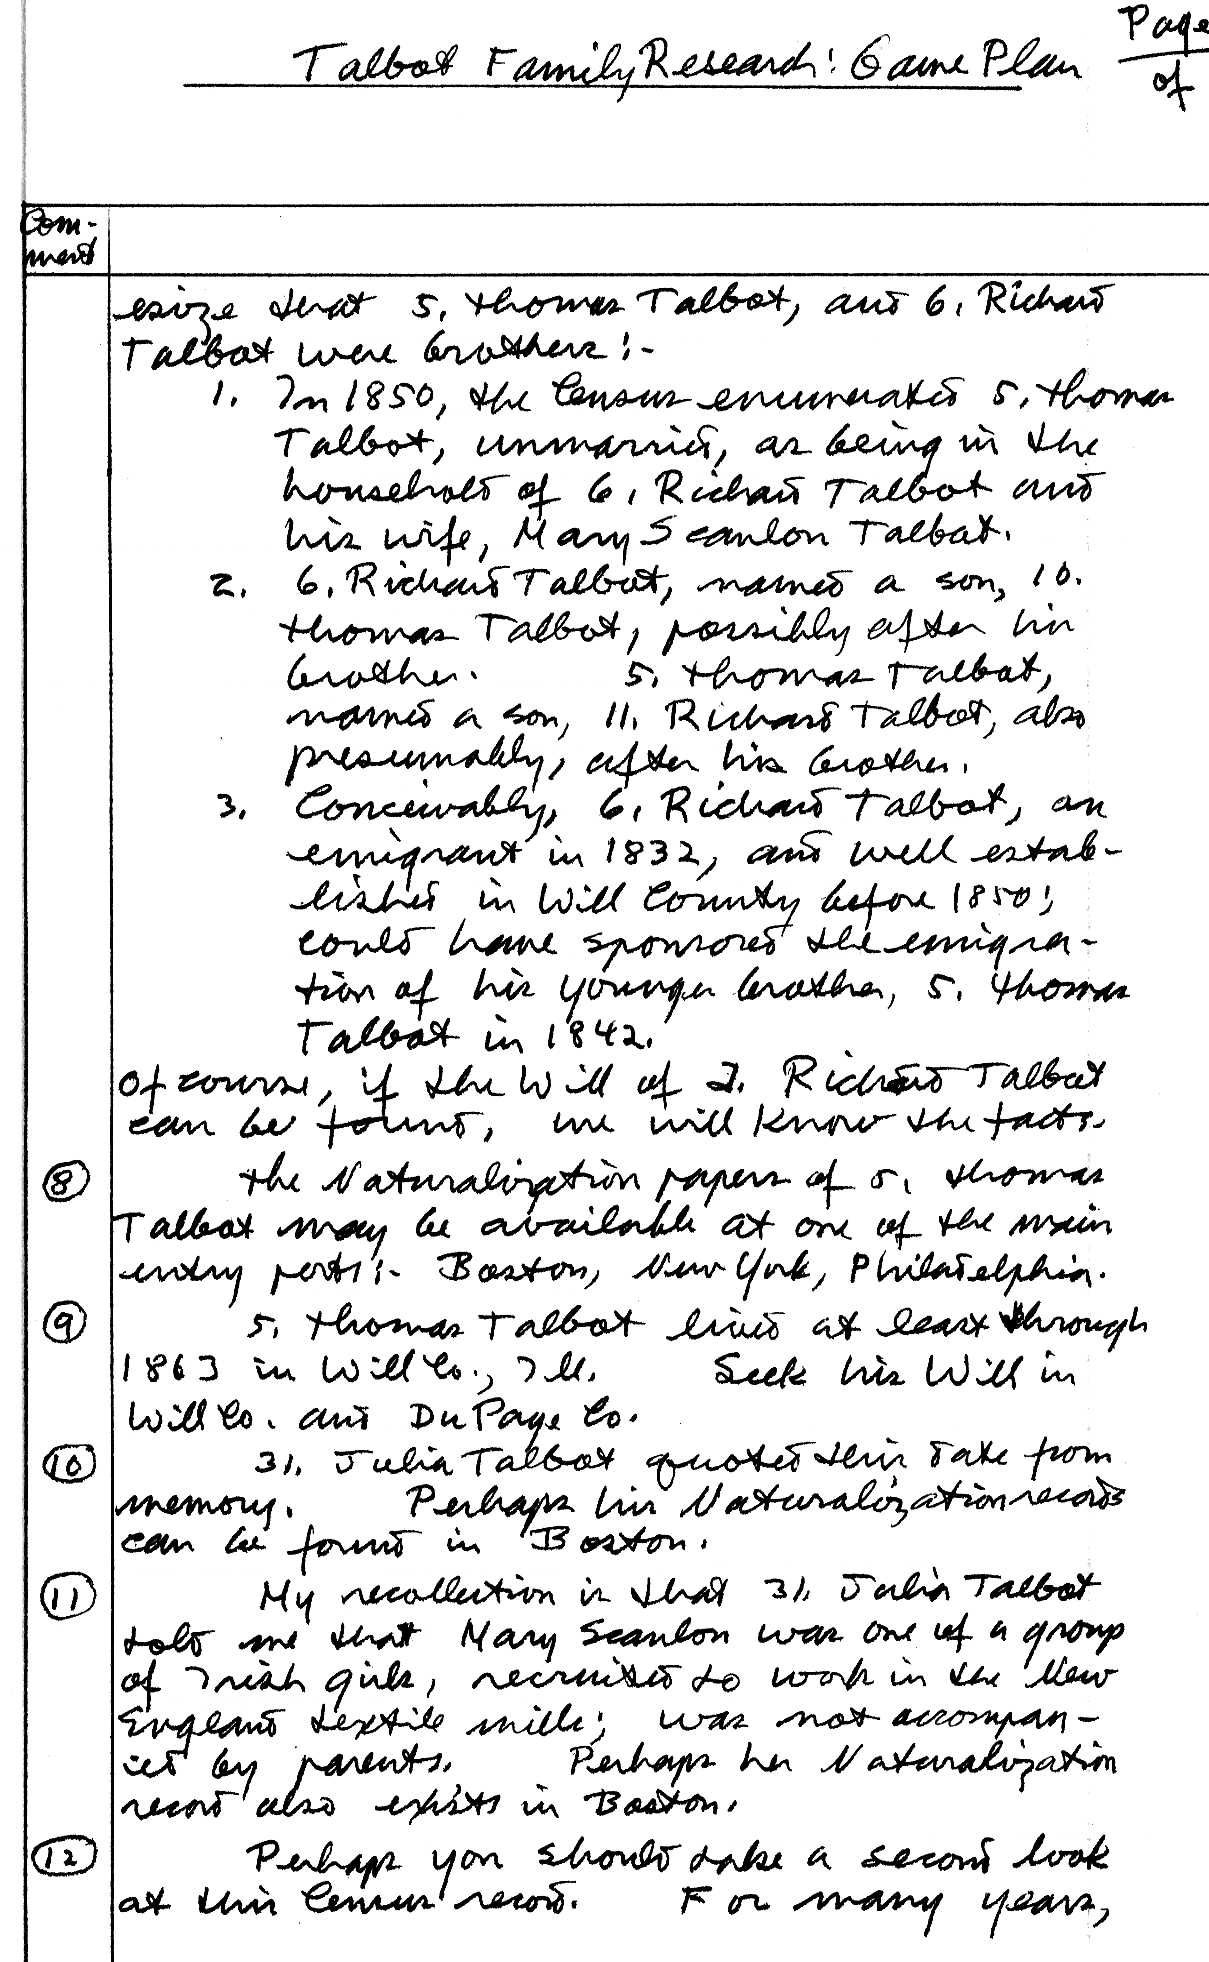 Talbot Family Research: Game Plan
Page
of
Com-
ment
esize that 5. Thomas Talbot, and 6. Richard
Talbot were brothers:-
1. In 1850, the Census enumerated 5. Thomas
Talbot, unmarried, as being in the
household of 6. Richard Talbot and
his wife, Mary Scanlon Talbot.
2. 6. Richard Talbot, named a son, 10.
Thomas Talbot, possibly after his
brother. 5. Thomas Talbot,
named a son, 11. Richard Talbot, also
presumably, after his brother.
3. Conceivably, 6. Richard Talbot, an
emigrant in 1832, and well estab-
lished in Will County before 1850;
could have sponsored the emigra-
tion of his younger brother, 5. Thomas
Talbot in 1842.
Of course, if the Will of 2. Richard Talbot
can be found, we will know the facts.
8 The Naturalization papers of 5. Thomas
Talbot may be available at one of the main
entry ports:- Boston, New York, Philadelphia.
9 5. Thomas Talbot lived at least through
1863 in Will Co., Ill. Seek his Will in
Will Co. and Du Page Co.
10 31. Julia Talbot quoted this date from
memory. Perhaps his Naturalization records
can be found in Boston.
11 My recollection is that 31. Julia Talbot
told me that Mary Scanlon was one of a group
of Irish girls, recruited to work in the New
England textile mills; was not accompan-
ied by parents. Perhaps her Naturalization
record also exists in Boston.
12 Perhaps you should take a second look
at this Census record. For many years,